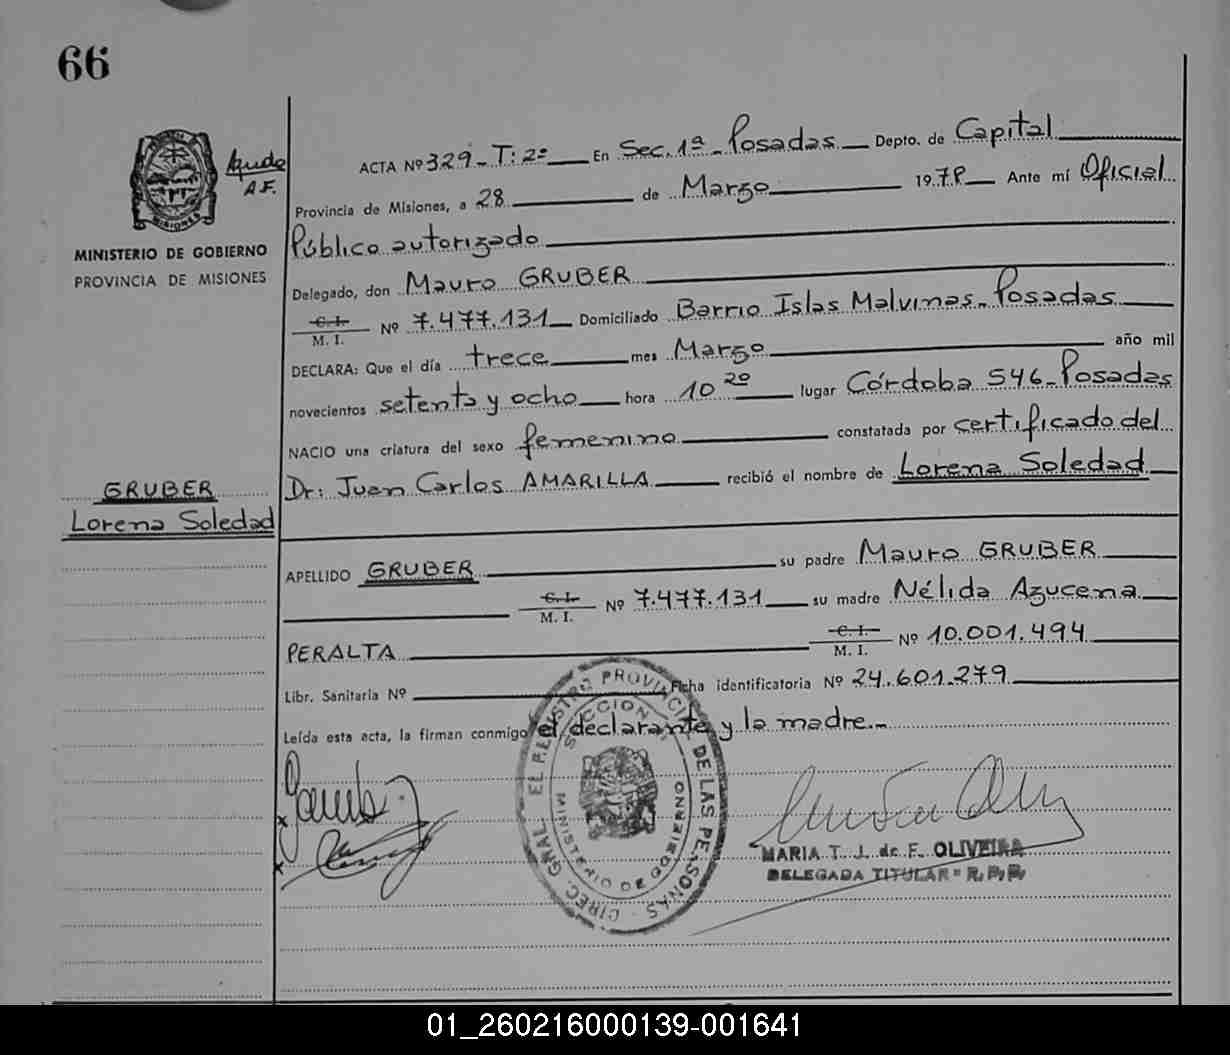 66
ACTA Nº 329_T: 2º En Sec. 1ª_Posadas Depto. de Capital
Provincia de Misiones, a 28 de Marzo 1978 Ante mí Oficial
Público autorizado
Delegado, don Mauro GRUBER
C. I.
M. I. Nº 7.477.131 Domiciliado Barrio Islas Malvinas_Posadas
DECLARA: Que el día trece mes Marzo año mil
novecientos setenta y ocho hora 10 20 lugar Córdoba 546_Posadas
NACIO una criatura del sexo femenino constatada por certificado del
Dr: Juan Carlos AMARILLA recibió el nombre de Lorena Soledad
APELLIDO GRUBER su padre Mauro GRUBER
C. I.
M. I. Nº 7.477.131 su madre Nélida Azucena
PERALTA C. I.
M. I. Nº 10.001.494
Libr. Sanitaria Nº Ficha identificatoria Nº 24.601.279
Leída esta acta, la firman conmigo el declarante y la madre._
A.F.
MISIONES
MINISTERIO DE GOBIERNO
PROVINCIA DE MISIONES
GRUBER
Lorena Soledad
REGISTRO PROVINCIAL DE LAS PERSONAS - DIREC. GRAL.
SECCION
MINISTERIO DE GOBIERNO
MARIA T. J. de F. OLIVEIRA
DELEGADA TITULAR R. P. P.
01_260216000139-001641